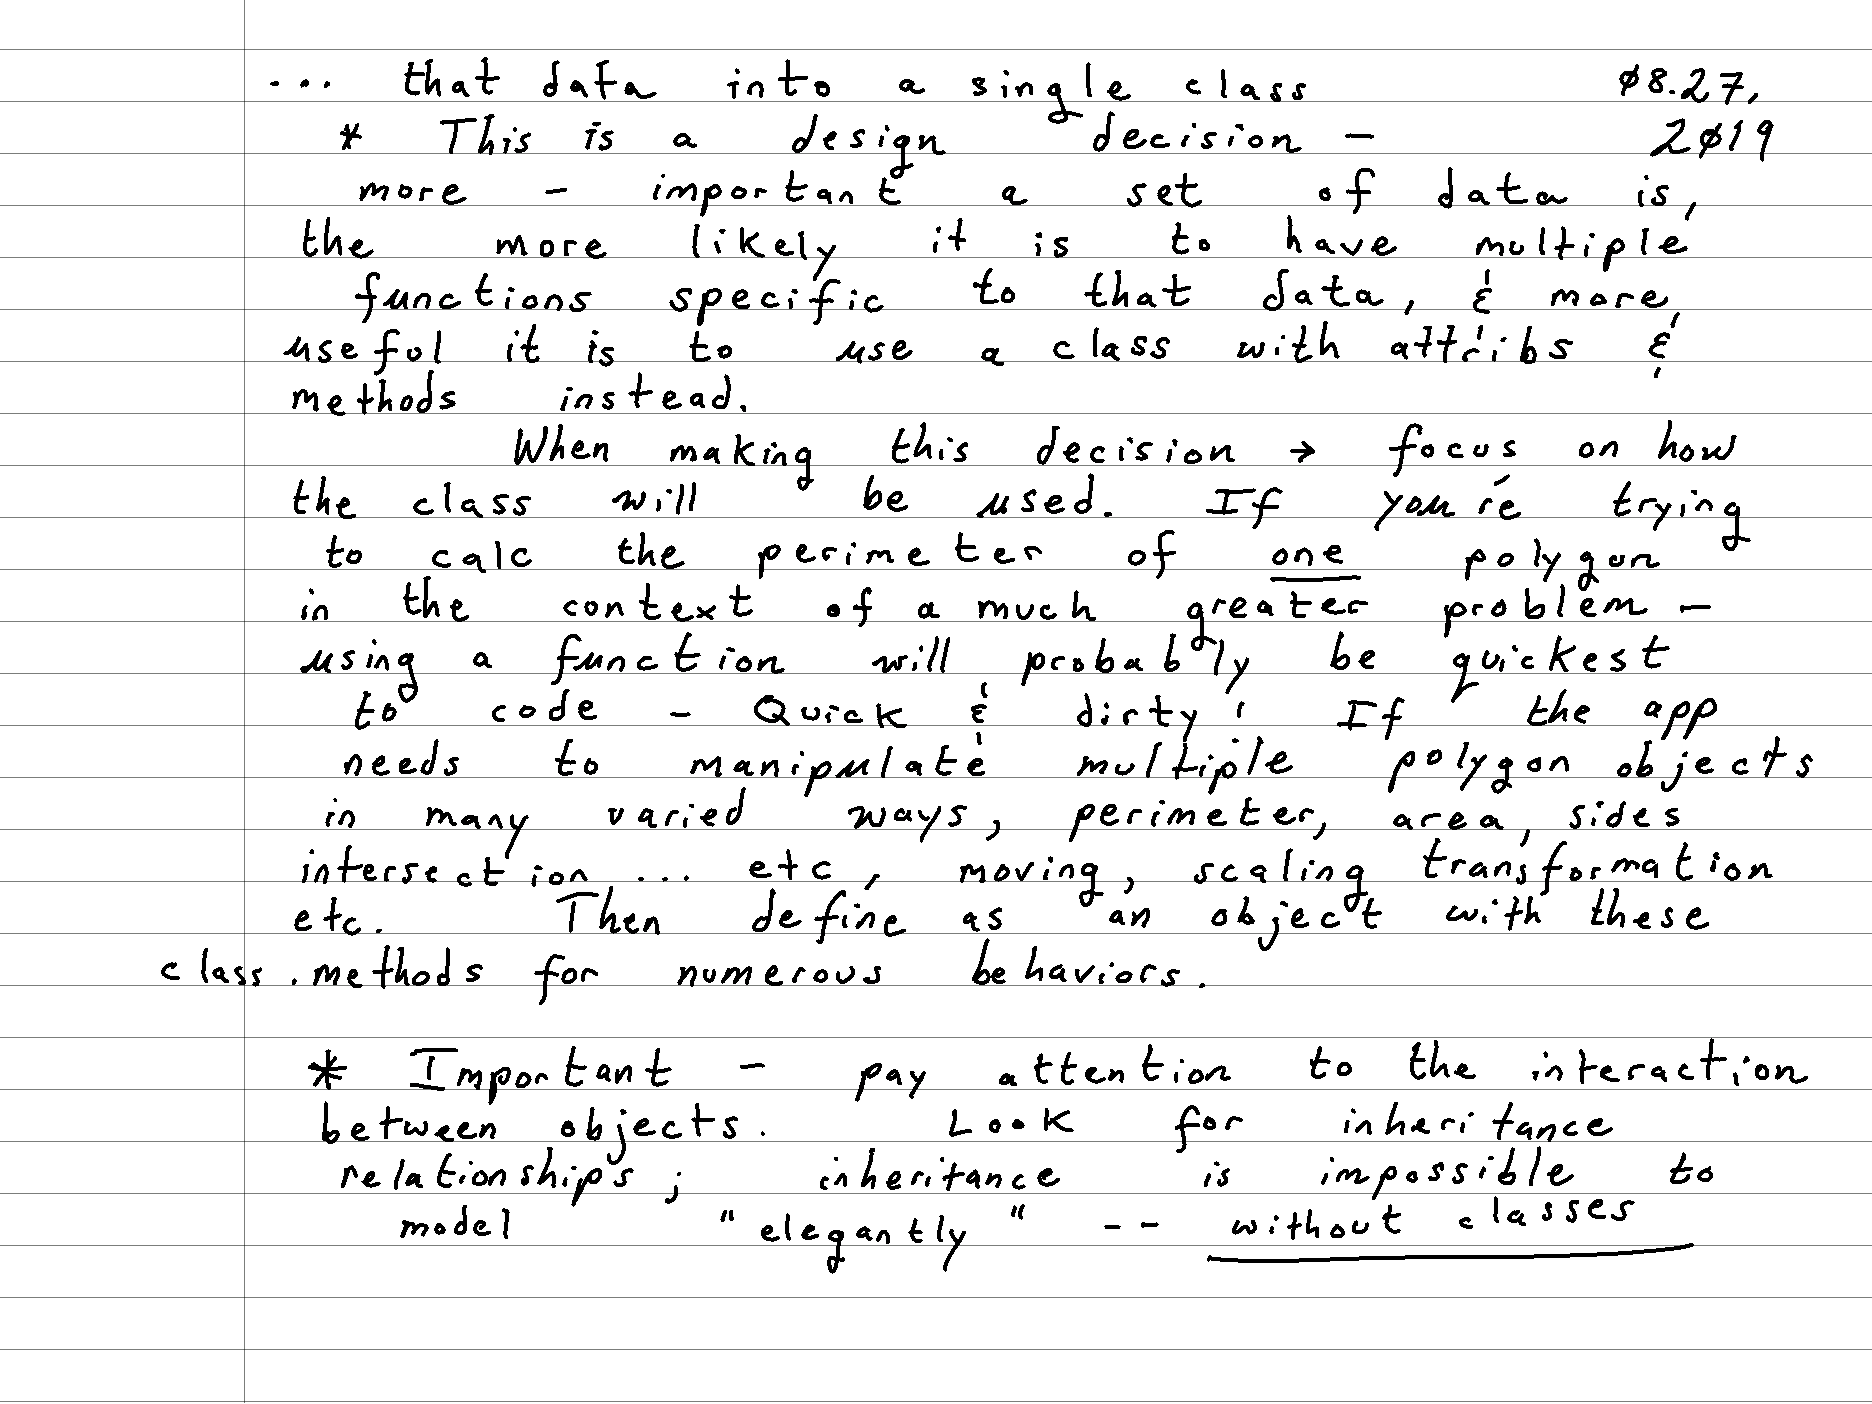 ... that data into a single class 08.27,
* This is a design decision — 2019
more - important a set of data is,
the more likely it is to have multiple
functions specific to that data, & more
useful it is to use a class with attribs &
methods instead.
When making this decision → focus on how
the class will be used. If you're trying
to calc the perimeter of one polygon
in the context of a much greater problem —
using a function will probably be quickest
to code - Quick & dirty! If the app
needs to manipulate multiple polygon objects
in many varied ways, perimeter, area, sides
intersection ... etc, moving, scaling transformation
etc. Then define as an object with these
class.methods for numerous behaviors.
* Important - pay attention to the interaction
between objects. Look for inheritance
relationships; inheritance is impossible to
model "elegantly" -- without classes